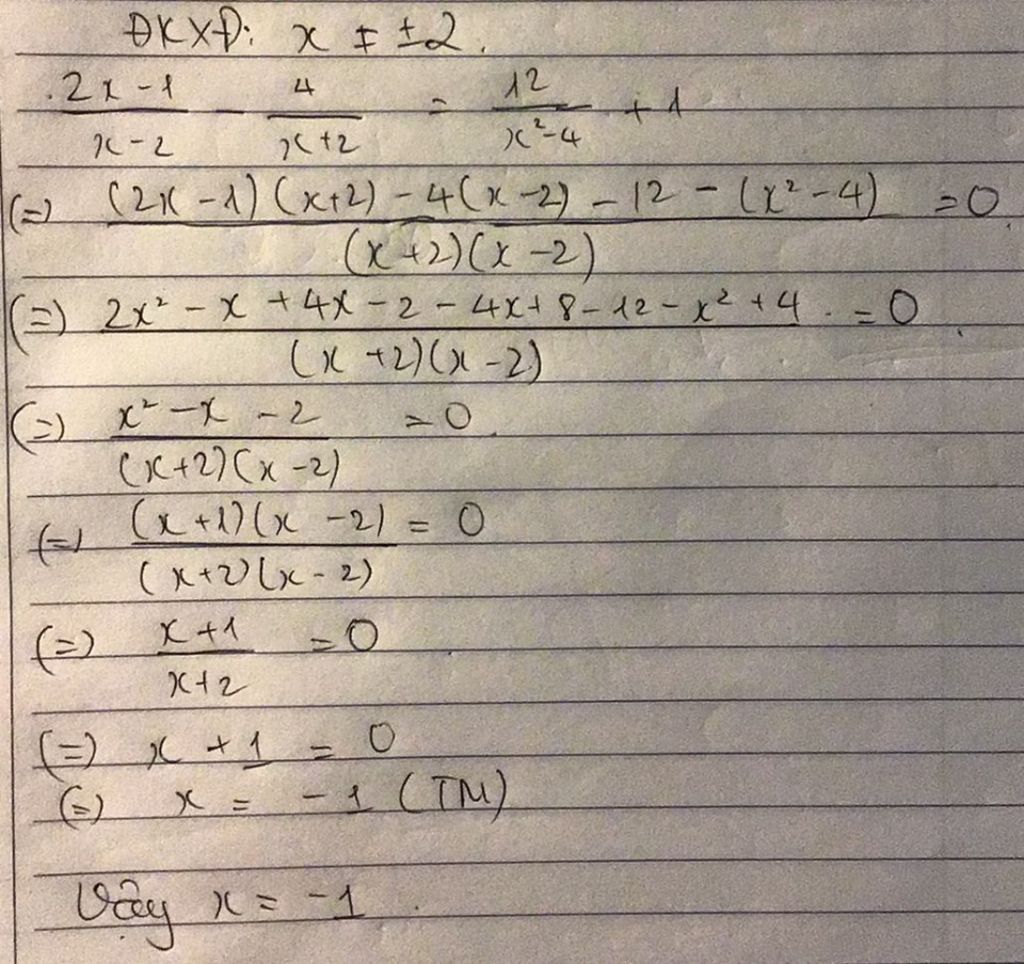 ĐKXĐ: x ≠ ±2.
(2x-1)/(x-2) - 4/(x+2) = 12/(x²-4) + 1
(=) ((2x-1)(x+2) - 4(x-2) - 12 - (x²-4))/((x+2)(x-2)) = 0
(=) (2x² - x + 4x - 2 - 4x + 8 - 12 - x² + 4)/((x+2)(x-2)) = 0
(=) (x² - x - 2)/((x+2)(x-2)) = 0
(=) ((x+1)(x-2))/((x+2)(x-2)) = 0
(=) (x+1)/(x+2) = 0
(=) x + 1 = 0
(=) x = -1 (TM)
Vậy x = -1.